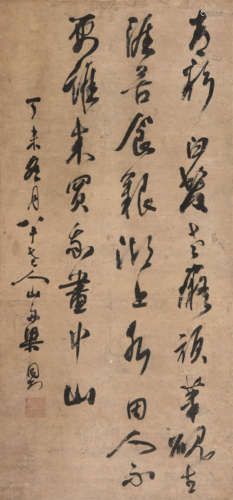 青衫白髮老癡頑筆硯生
涯苦食艱湖上水田人不
要誰來買我畫中山
丁未冬月八十老人山舟梁